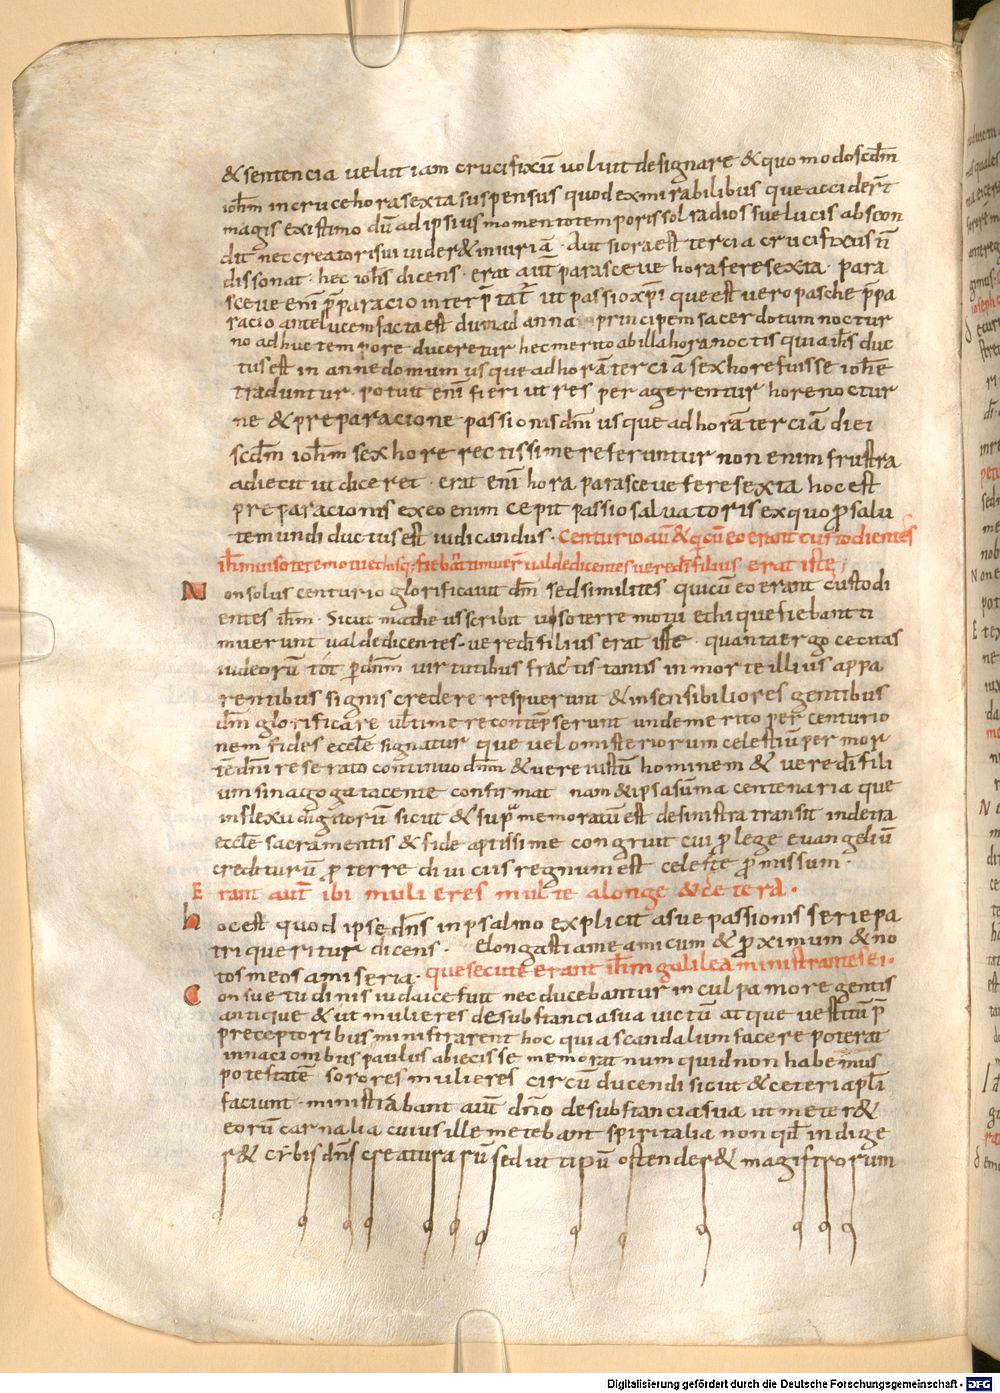 & sentencia velut iam crucifixū voluit designare & quomodo scdm
ioh̄m in cruce hora sexta suspensus quod ex mirabilibus que accidert̄
magis existimo dū ad ipsius momento temporis sol radios sue lucis abscon
dit nec creatori sui vider& iniuriā · Aut si ora est tercia crucifixus n̄
dissonat · hec ioh̄s dicens · erat aūt parasceve hora fere sexta · para
sceve enī p̄paracio interp̄tat̄ ut passio xp̄i que est vero pasche p̄pa
racio ante lucem facta est dum ad anna principem sacerdotum noctur
no adhuc tempore duceretur hec merito ab illa hora noctis qua ih̄s duc
tus est in anne domum usque ad horā terciā sex hore fuisse ioh̄e
traduntur · potuit enī fieri ut res per agerentur hore noctur
ne & preparacione passionis dn̄i usque ad horā terciā diei
scdm ioh̄m sex hore rectissime referuntur non enim frustra
adiecit ut diceret · erat enī hora parasceve fere sexta hoc est
preparacionis ex eo enim cepit passio salvatoris ex quo p salu
tem mundi ductus est iudicandus · Centurio aū & q̄ cū eo erant custodientes
ih̄m viso terremotu et his q; fiebāt timuer̄ valde dicentes vere di filius erat iste;
Non solus centurio glorificavit dm̄ sed similites qui cū eo erant custodi
entes ih̄m · Sicut matheus scribit viso terre motu et hi que fiebant ti
muerunt valde dicentes · vere di filius erat iste · quanta ergo cecitas
iudeorū tot p dn̄m virtutibus fractis tantis in morte illius appa
rentibus signis credere respuerunt & insensibiliores gentibus
dm̄ glorificare ul timere contēpserunt unde merito per centurio
nem fides eccle signatur que velo misteriorum celestiū per mor
tē dn̄i reserato continuo dn̄m & vere iustū hominem & vere di fili
um sinagoga tacente confirmat nam & ipsa sūma centenaria que
in flexu digitorū sicut & supra memoratū est de sinistra transit in dextra
eccle sacramentis & fide aptissime congruit cui p lege evangeliū
crediturū p terre divicus regnum est celeste p missum ·
Erant aūt ibi mulieres multe a longe & cetera ·
hoc est quod ipse dn̄s in psalmo explicit a sue passionis serie pa
tri queritur dicens · Elongasti a me amicum & proximum & no
tos meos a miseria · que secute erant ih̄m galilea ministrantes ei ·
Consuetudinis iudaice fuit nec ducebantur in culpa more gentis
antique & ut mulieres de substancia sua victū atque vestitū p
preceptoribus ministrarent hoc quia scandalum facere poterat
in nacionibus paulus abiecisse memorat numquid non habemus
potestatē sorores mulieres circū ducendi sicut & ceteri apl̄i
faciunt · ministrabant aūt dn̄o de substancia sua ut meter&
eorū carnalia cuius ille metebant spiritalia non qd̄ indige
r& cibis dn̄s creaturarū sed ut tipū ostender& magistrorum